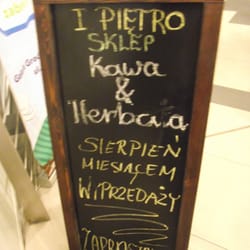 I PIĘTRO
SKLEP
Kawa
&
Herbata
SIERPIEŃ
MIESIĄCEM
WYPRZEDAŻY